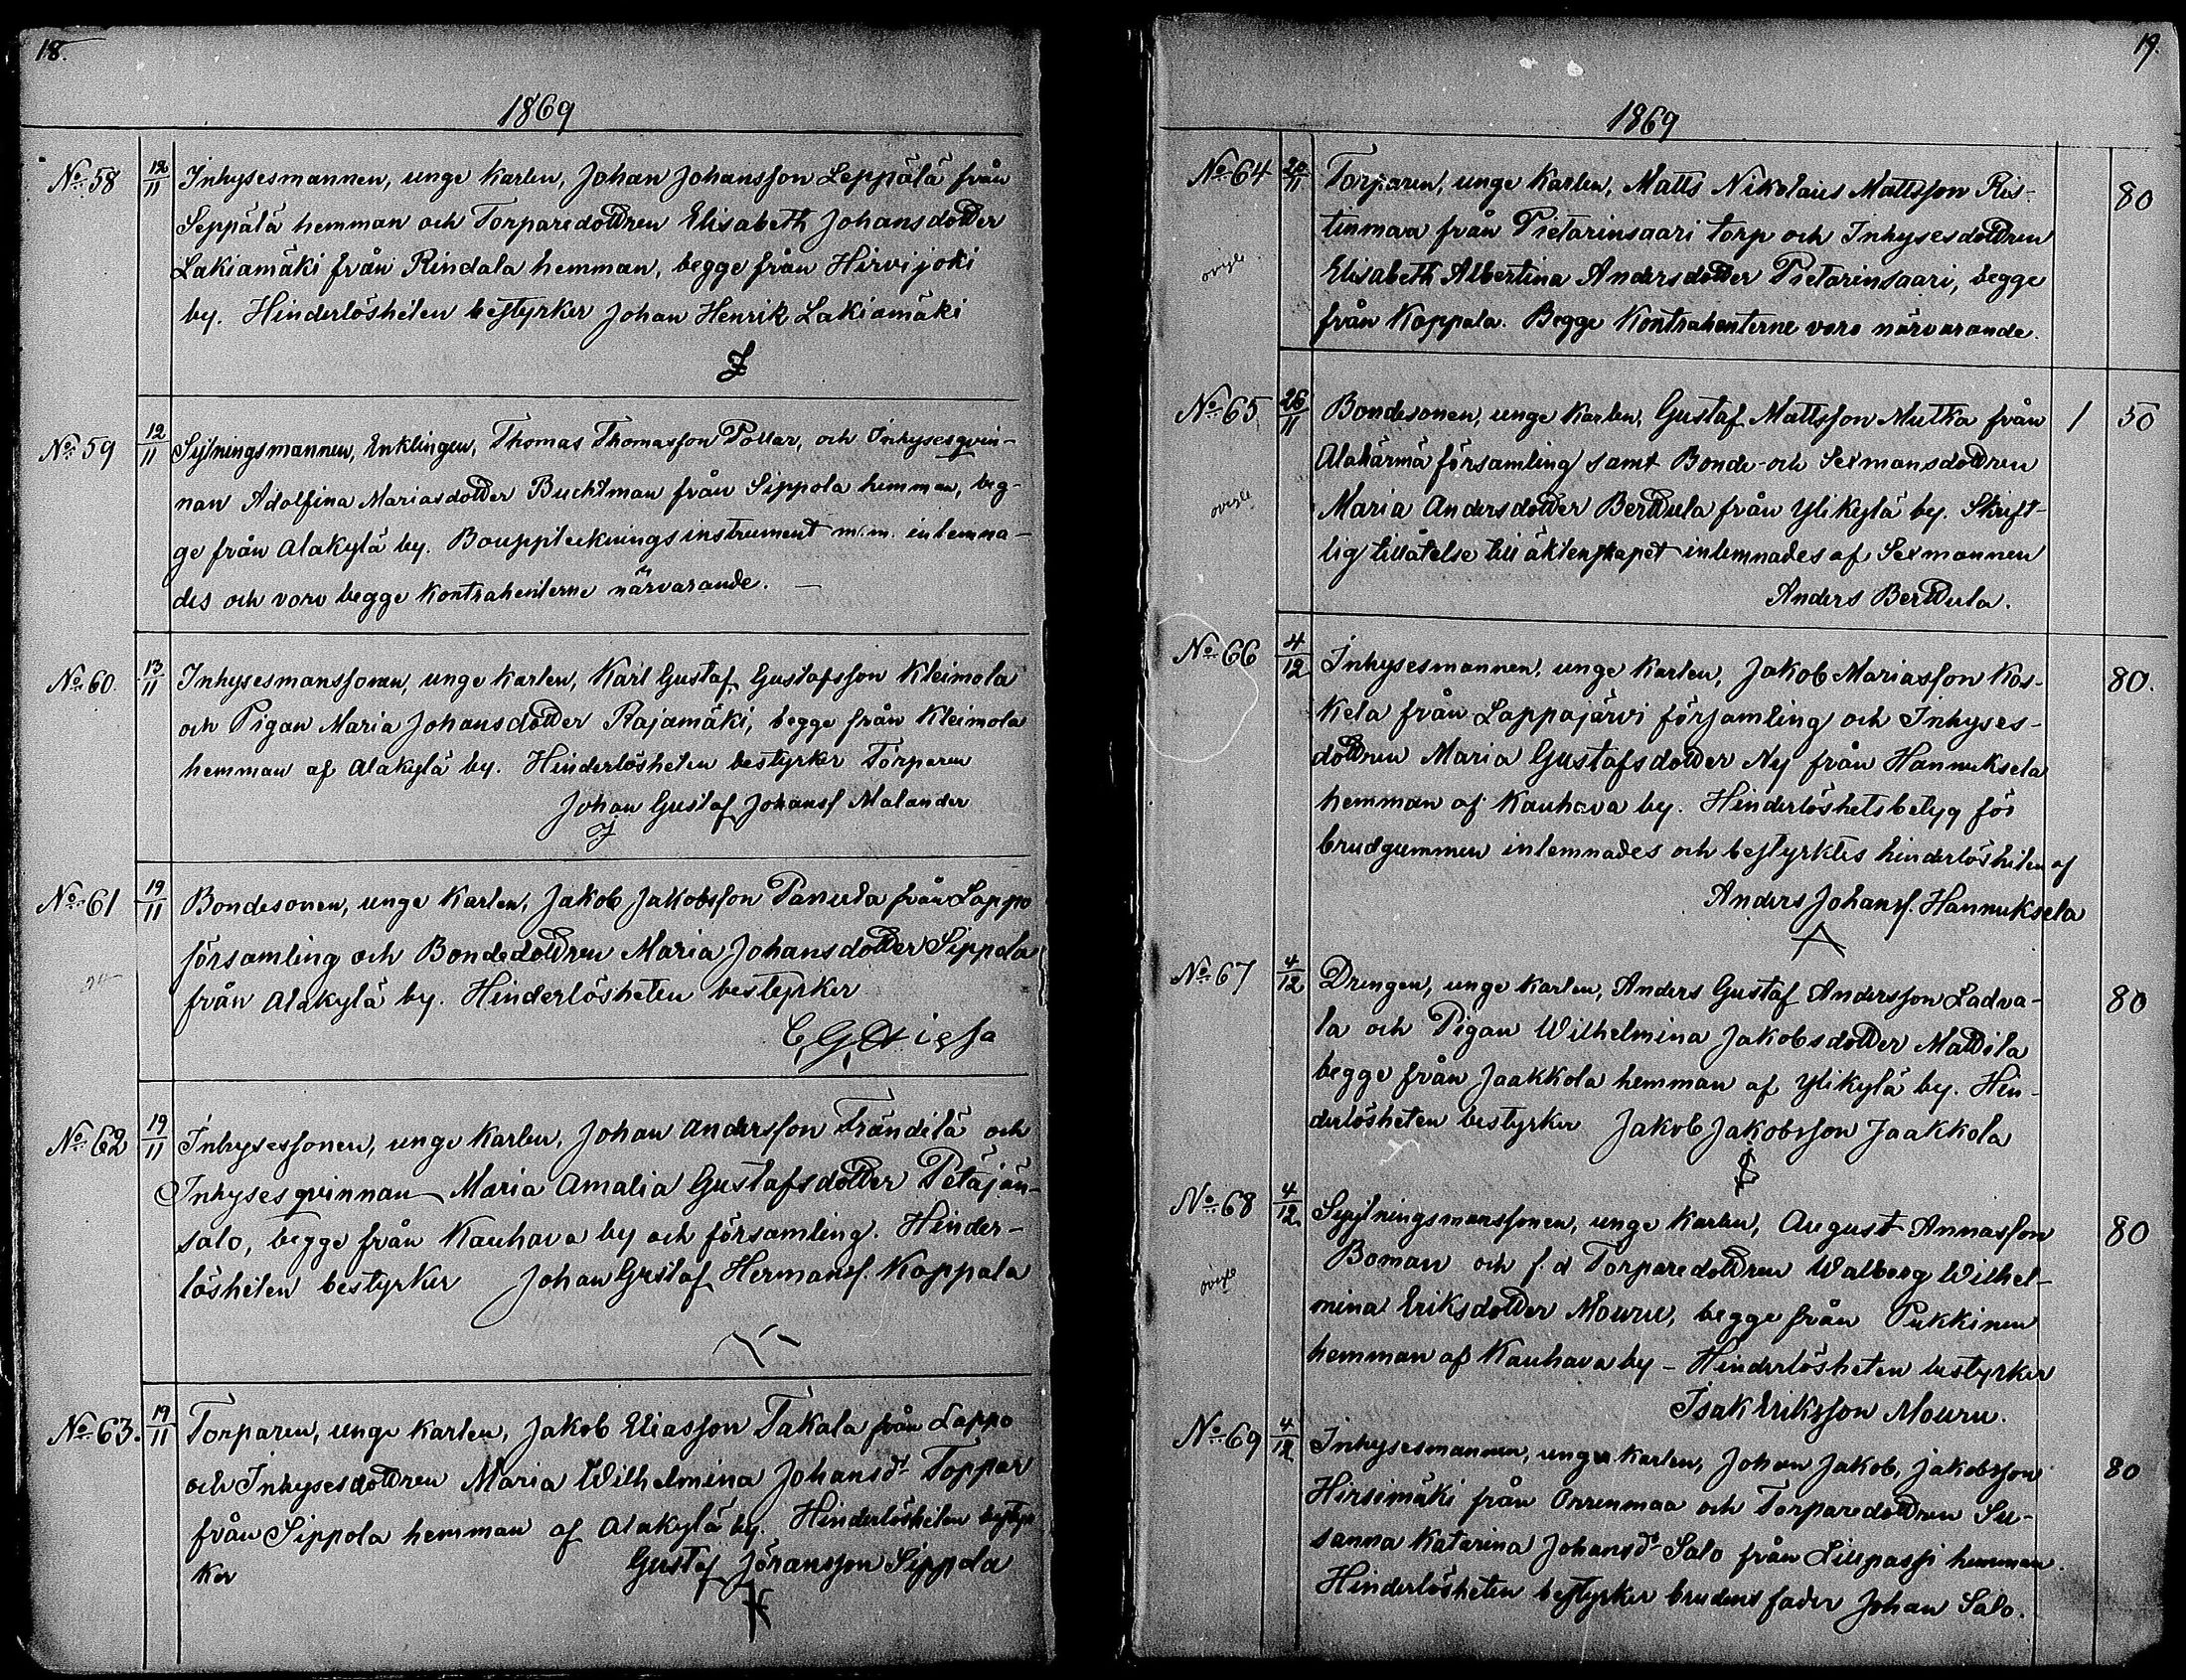 18.
1869
No 58 12/11 Inhysesmannen, unge karlen, Johan Johansson Leppälä från
Seppälä hemman och Torparedottren Elisabeth Johansdotter
Lakiamäki från Rindala hemman, begge från Hirvijoki
by. Hinderlösheten bestyrker Johan Henrik Lakiamäki
No 59 12/11 Sytningsmannen, Enklingen, Thomas Thomasson Pollar, och Inhysesqvin-
nan Adolfina Mariasdotter Buchtman från Sippola hemman, beg-
ge från Alakylä by. Bouppteckningsinstrument m.m. inlemna-
des och voro begge kontrahenterne närvarande. —
No 60. 13/11 Inhysesmanssonen, unge karlen, Karl Gustaf Gustafsson Kleimola
och Pigan Maria Johansdotter Rajamäki, begge från Kleimola
hemman af Alakylä by. Hinderlösheten bestyrker Torparen
Johan Gustaf Johanss Malander
No 61 19/11 Bondesonen, unge karlen, Jakob Jakobsson Panula från Lappo
församling och Bondedottren Maria Johansdotter Sippola
från Alakylä by. Hinderlösheten bestyrker
No 62 19/11 Inhysessonen, unge karlen, Johan Andersson Frändilä och
Inhysesqvinnan Maria Amalia Gustafsdotter Petäjän-
salo, begge från Kauhava by och församling. Hinder-
lösheten bestyrker Johan Gustaf Hermanss. Kappala
No 63. 19/11 Torparen, unge karlen, Jakob Eliasson Takala från Lappo
och Inhysesdottren Maria Wilhelmina Johansdr Toppar
från Sippola hemman af Alakylä by. Hinderlösheten bestyr
ker Gustaf Jöransson Sippola
19.
1869
No 64 20/11 Torparen, unge karlen, Matts Nikolaus Mattsson Ris- 80
tinmaa från Pietarinsaari torp och Inhysesdottren
Elisabeth Albertina Andersdotter Pietarinsaari, begge
från Kappala. Begge kontrahenterne voro närvarande.
No 65 26/11 Bondesonen, unge karlen, Gustaf Mattsson Mutka från 1 50
Alahärmä församling samt Bonde- och Sexmansdottren
Maria Andersdotter Berttula från Ylikylä by. Skrift-
lig tillåtelse till äktenskapet inlemnades af Sexmannen
Anders Berttula.
No 66 4/12 Inhysesmannen, unge karlen, Jakob Mariasson Kos- 80.
kela från Lappajärvi församling och Inhyses-
dottren Maria Gustafsdotter Ny från Hannuksela
hemman af Kauhava by. Hinderlöshetsbetyg för
brudgummen inlemnades och bestyrktes hinderlösheten af
Anders Johanss. Hannuksela
No 67 4/12 Drengen, unge karlen, Anders Gustaf Andersson Ladva- 80
la och Pigan Wilhelmina Jakobsdotter Mattila
begge från Jaakkola hemman af Ylikylä by. Hin-
derlösheten bestyrker Jakob Jakobsson Jaakkola
No 68 4/12 Sytningsmanssonen, unge karlen, August Annasson 80
Boman och f.d Torparedottren Walborg Wilhel-
mina Eriksdotter Mouru, begge från Pukkinen
hemman af Kauhava by - Hinderlösheten bestyrker
Isak Eriksson Mouru.
No 69 4/12 Inhysesmannen, unge karlen, Johan Jakob, Jakobsson 80
Hirsimäki från Orrenmaa och Torparedottren Su-
sanna Katarina Johansdr Salo från Liupassi hemman.
Hinderlösheten bestyrker brudens fader Johan Salo.